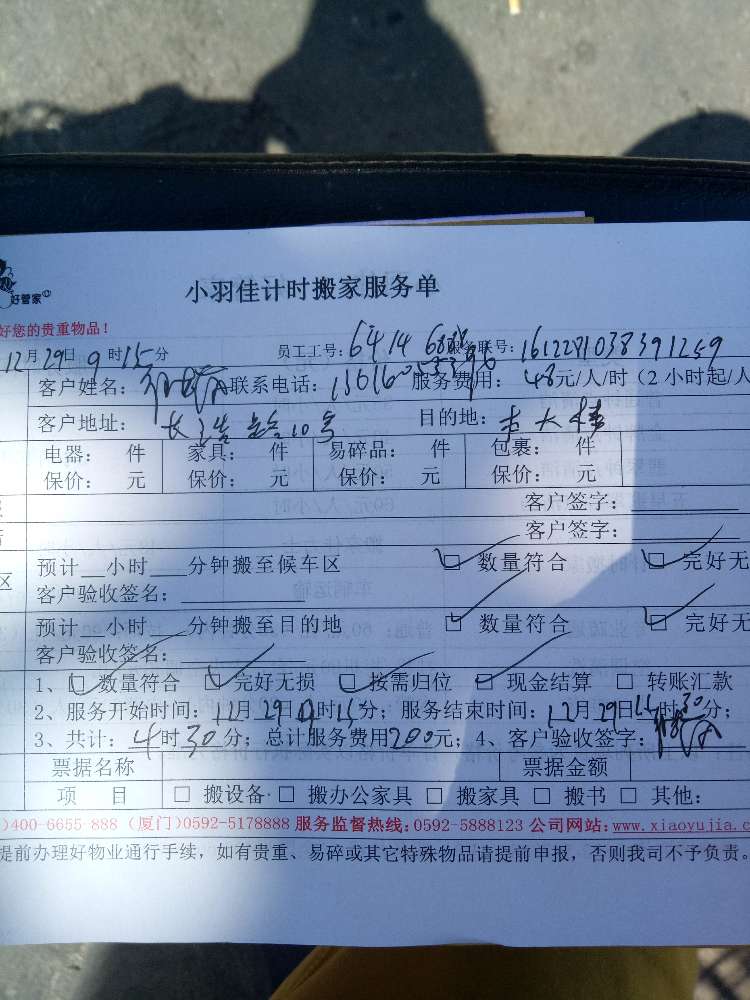 好管家
小羽佳计时搬家服务单
好您的贵重物品！
12月29日9时15分 员工工号：6414 服务联号：1612281038391259
客户姓名： 联系电话：13616 服务费用：48元/人/时（2小时起/人
客户地址：长 路10号 目的地：
电器： 件 家具： 件 易碎品： 件 包裹： 件
保价： 元 保价： 元 保价： 元 保价： 元
客户签字：
客户签字：
预计__小时___分钟搬至候车区 ☐ 数量符合 ☐ 完好无
区 客户验收签名：
预计__小时___分钟搬至目的地 ☐ 数量符合 ☐ 完好无
客户验收签名：
1、☐ 数量符合 ☐ 完好无损 ☐ 按需归位 ☐ 现金结算 ☐ 转账汇款
2、服务开始时间：12月29日9时15分；服务结束时间：12月29日 时30分；
3、共计：4时30分；总计服务费用200元；4、客户验收签字：
票据名称 票据金额
项 目 ☐ 搬设备 ☐ 搬办公家具 ☐ 搬家具 ☐ 搬书 ☐ 其他：
)400-6655-888 (厦门)0592-5178888 服务监督热线：0592-5888123 公司网站：www.xiaoyujia.c
提前办理好物业通行手续，如有贵重、易碎或其它特殊物品请提前申报，否则我司不予负责。